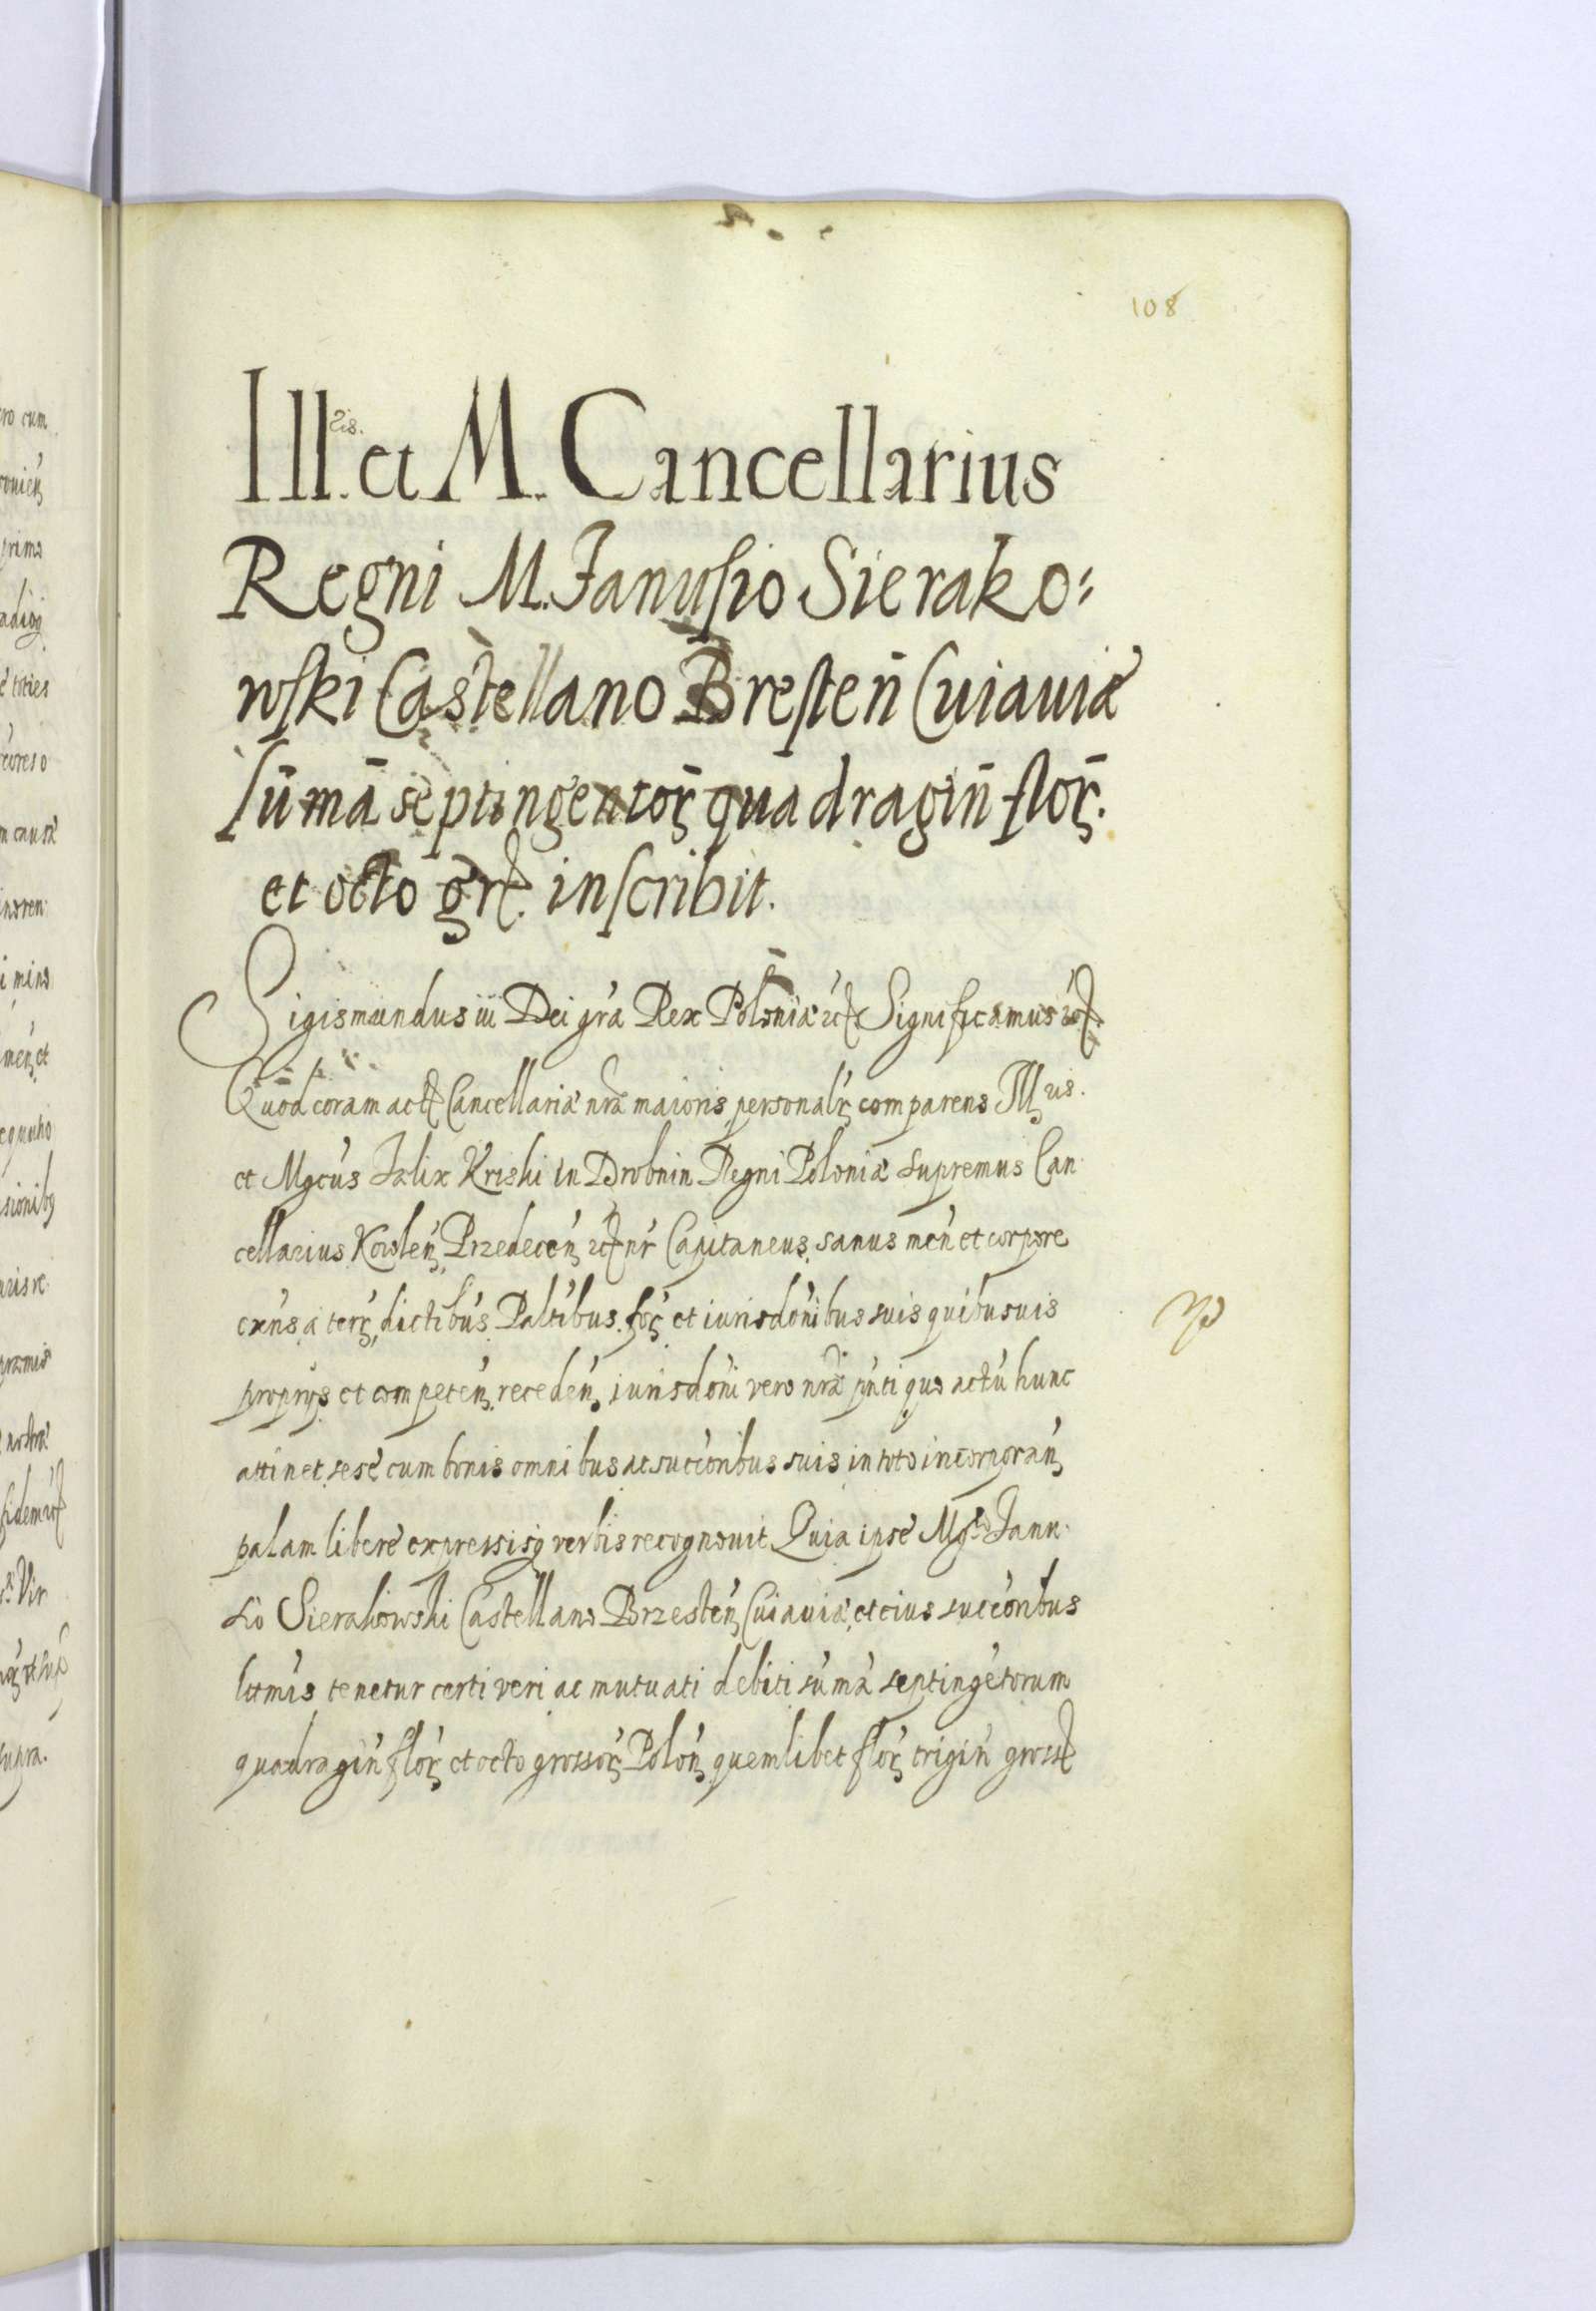 108
Ill. et M. Cancellarius
Regni M. Janusio Sierako:
wski Castellano Bresten̄ Cuiauiæ
sūmā septingentor̄ quadragin̄ flor̄.
et octo gr. inscribit.
Sigismundus iii Dei gra Rex Poloniæ etc Significamus etc.
Quod coram act Cancellariæ nræ maioris personalr comparens Ill us.
et Mgcus Fælix Kriski in Drobnin Regni Poloniæ supremus Can
cellarius Kowlen Przedecen etc nr Capitaneus, sanus men et corpore
exns a terr, dictibus Paltibus. for et iurisdonibus suis quibusuis
proprys et competen receden, iurisdoni vero nræ pnti quo actu hunc
attinet sese cum bonis omnibus ac succoribus suis in toto incorporan
palam libere expressisq verbis recognouit Quia ipse Mgco Janu
sio Sierakowski Castellano Brzesten Cuiauiæ, et eius succoribus
ltimis tenetur certi veri ac mutuati debiti suma septingetorum
quadragin flor et octo grossor Polon quemlibet flor trigin gross